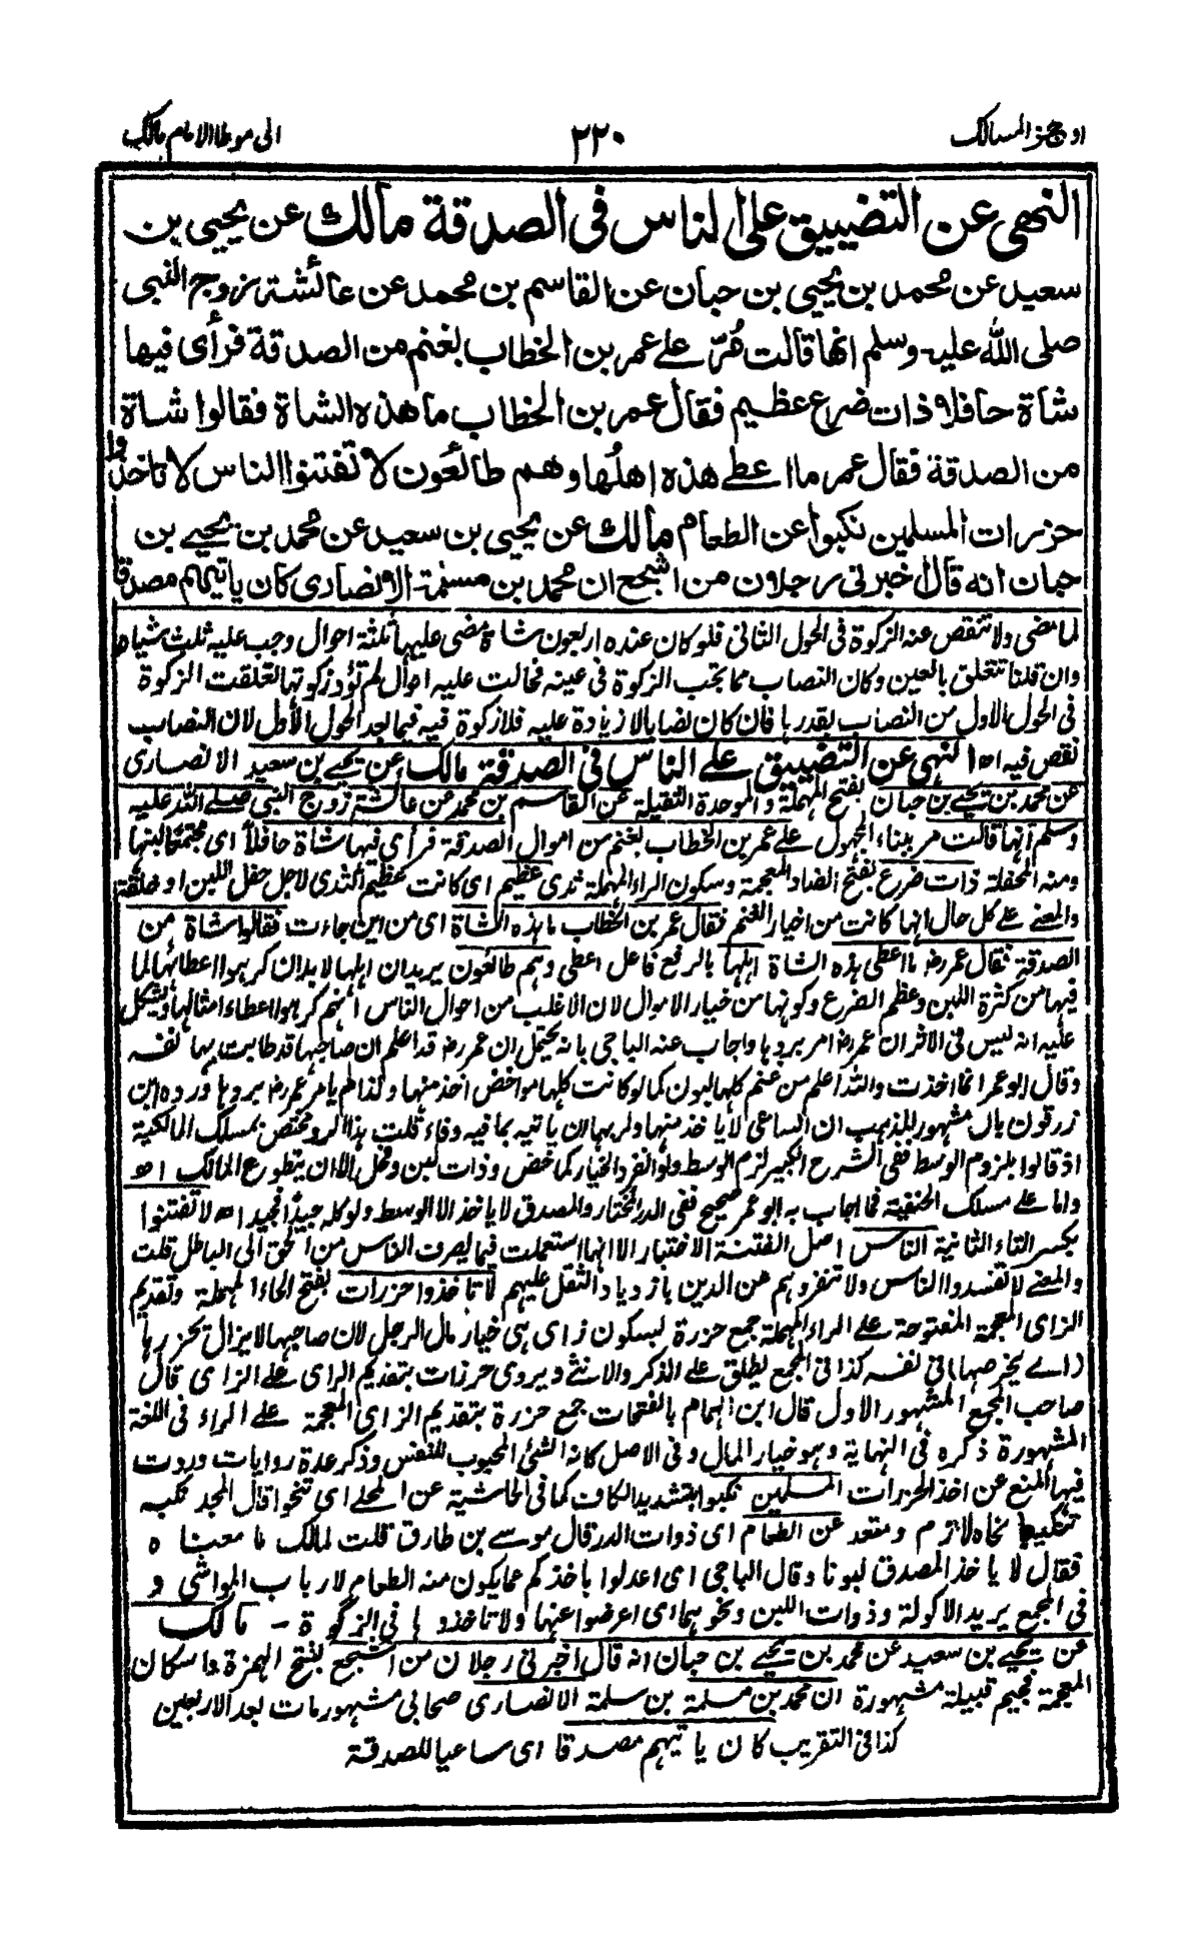 اوجز المسالك ٢٢٠ الى موطا الامام مالك
النهى عن التضييق على الناس فى الصدقة مالك عن يحيى بن
سعيد عن محمد بن يحيى بن حبان عن القاسم بن محمد عن عائشة زوج النبى
صلى الله عليه وسلم انها قالت مُرّ على عمر بن الخطاب بغنم من الصدقة فرأى فيها
شاة حافلا ذات ضرع عظيم فقال عمر بن الخطاب ما هذه الشاة فقالوا شاة
من الصدقة فقال عمر ما اعطى هذه اهلُها وهم طائعون لا تفتنوا الناس لا تاخذوا
حزرات المسلمين نكبوا عن الطعام مالك عن يحيى بن سعيد عن محمد بن يحيى بن
حبان انه قال اخبرنى رجلان من اشجع ان محمد بن مسلمة الانصارى كان ياتيهم مصدقا
لما مضى ولا تنقص عنه الزكوة فى الحول الثانى فلو كان عنده اربعون شاة مضى عليها ثلثة احوال وجب عليه ثلث شياه
وان قلنا تتعلق بالعين وكان النصاب مما تجب الزكوة فى عينه فحالت عليه احوال لم تؤد زكوتها تعلقت الزكوة
فى الحول الاول من النصاب بقدرها فان كان نصابا لا زيادة عليه فلا زكوة فيه فيما بعد الحول الأول لان النصاب
نقص فيه اھ النهى عن التضييق على الناس فى الصدقة مالك عن يحيى بن سعيد الانصارى
عن محمد بن يحيى بن حبان بفتح المهملة والموحدة الثقيلة عن القاسم بن محمد عن عائشة زوج النبى صلى الله عليه
وسلم انها قالت مر ببناء المجهول على عمر بن الخطاب بغنم من اموال الصدقة فرأى فيها شاة حافلاً اى مجتمعًا لبنها
ومنه المحفلة ذات ضرع بفتح الضاد المعجمة وسكون الراء المهملة ثدى عظيم اى كانت عظيم الثدى لاجل حفل اللبن او خلقة
والمعنى على كل حال انها كانت من اخيار الغنم فقال عمر بن الخطاب ما هذه الشاة اى من اين جاءت فقالوا شاة من
الصدقة فقال عمر رض ما اعطى هذه الشاة اهلها بالرفع فاعل اعطى وهم طائعون يريد ان اهلها لابد ان كرهوا اعطائها لما
فيها من كثرة اللبن وعظم الضرع وكونها من خيار الاموال لان الاغلب من احوال الناس انهم كرهوا اعطاء امثالها ويشكل
عليه انه ليس فى الاثر ان عمر رض امر بردها واجاب عنه الباجى بانه يحتمل ان عمر رض قد اعلم ان صاحبها قد طابت بها نفسه
وقال ابو عمر انما اخذت والله اعلم من غنم كلها لبون كما لو كانت كلها مواخض اخذ منها ولذا لم يامر عمر رض بردها ورده ابن
زرقون بان مشهور المذهب ان الساعى لا ياخذ منها ولربها ان ياتيه بما فيه وفاء قلت هذا الرد مختص بمسلك المالكية
اذ قالوا بلزوم الوسط ففى الشرح الكبير لزم الوسط ولو انفرد الخيار كماخض وذات لبن وفحل الا ان يتطوع المالك اھ
واما على مسلك الحنفية فما اجاب به ابو عمر صحيح ففى الدر المختار والمصدق لا ياخذ الا الوسط ولو كله جيدًا فجيد اھ لا تفتنوا
بكسر التاء الثانية الناس اصل الفتنة الاختبار الا انها استعملت فيما يصرف الناس من الحق الى الباطل قلت
والمعنى لا تفسدوا الناس ولا تنفروهم عن الدين بازدياد الثقل عليهم لا تاخذوا حزرات بفتح الحاء المهملة وتقديم
الزاى المعجمة المفتوحة على الراء المهملة جمع حزرة بسكون زاى هى خيار مال الرجل لان صاحبها لا يزال يحزرها
(اى يخرصها) فى نفسه كذا فى المجمع يطلق على الذكر والانثى ويروى حرزات بتقديم الراى على الزاى قال
صاحب المجمع المشهور الاول قال ابن الهمام بالفتحات جمع حزرة بتقديم الزاى المعجمة على الراء فى اللغة
المشهورة ذكره فى النهاية وهو خيار المال وفى الاصل كانه الشئ المحبوب للنفس وذكر عدة روايات وردت
فيها المنع عن اخذ الحزرات المسلمين نكبوا بتشديد الكاف كما فى الحاشية عن المحلى اى تنحوا قال المجد نكبه
تنكيبا نحاه لازم ومتعد عن الطعام اى ذوات الدر قال موسى بن طارق قلت لمالك ما معناه
فقال لا ياخذ المصدق لبونا وقال الباجى اى اعدلوا باخذكم عما يكون منه الطعام لارباب المواشى و
فى المجمع يريد الاكولة وذوات اللبن ونحوهما اى اعرضوا عنها ولا تاخذوها فى الزكوة - مالك
عن يحيى بن سعيد عن محمد بن يحيى بن حبان انه قال اخبرنى رجلان من اشجع بفتح الهمزة واسكان
المعجمة فجيم قبيلة مشهورة ان محمد بن مسلمة بن سلمة الانصارى صحابى مشهور مات بعد الاربعين
كذا فى التقريب كان ياتيهم مصدقا اى ساعيا للصدقة